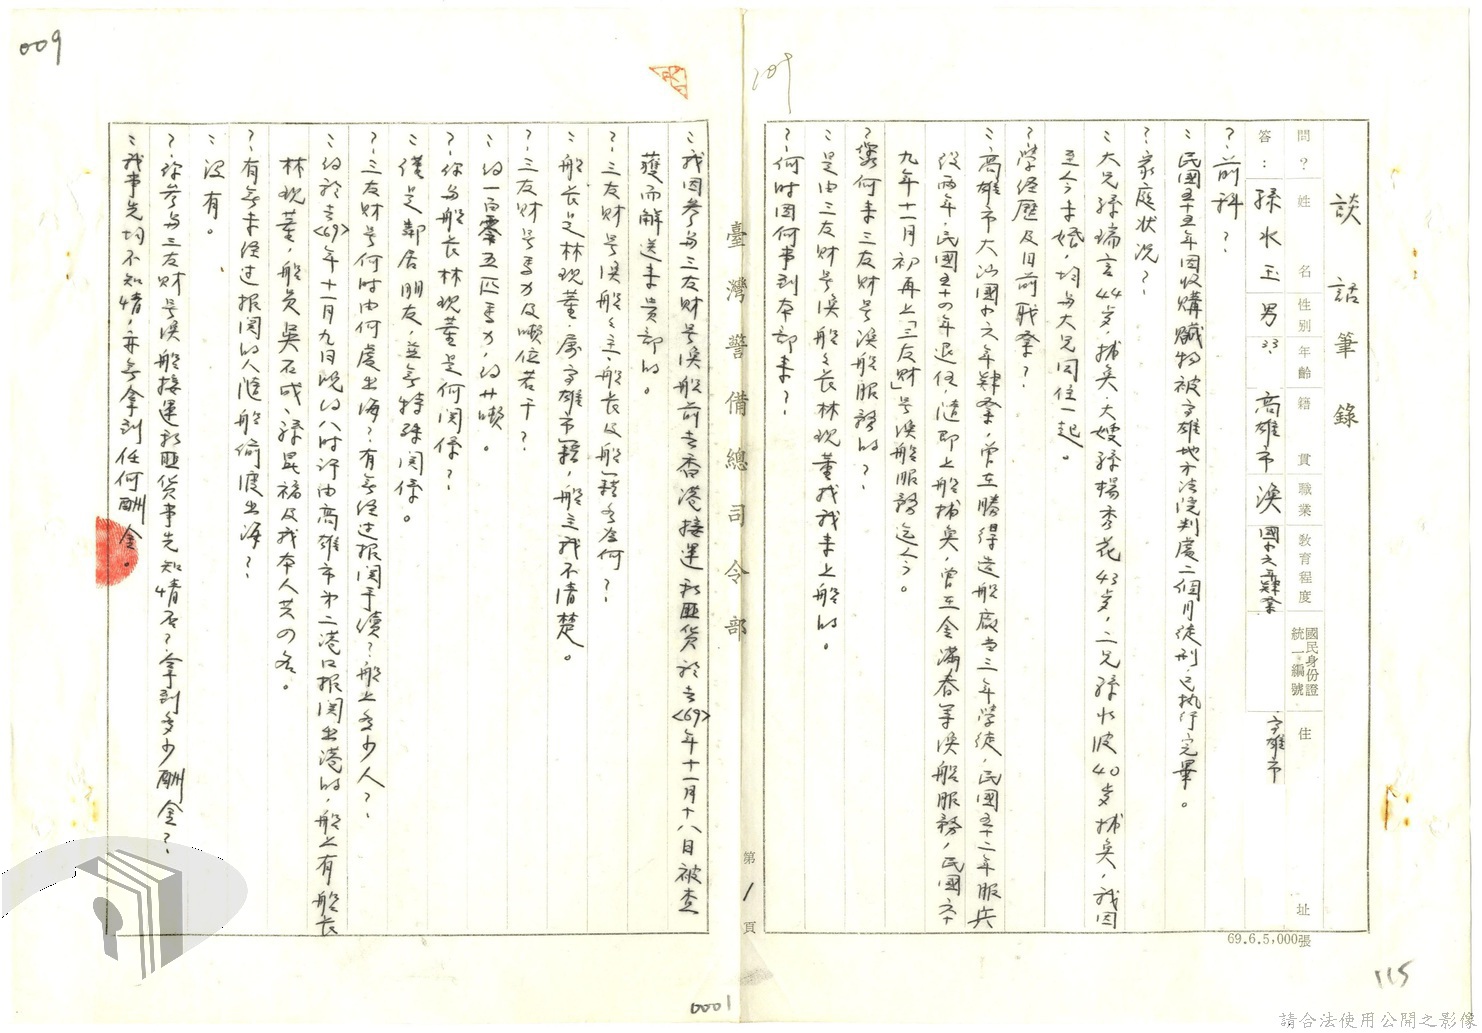 009
109
談話筆錄
問？姓名 性別 年齡 籍貫 職業 教育程度 國民身份證統一編號 住址
答：孫水玉 男 33 高雄市 漁 國小六年肄業 高雄市
？前科？
：民國五十五年因收購贓物被高雄地方法院判處二個月徒刑，已執行完畢。
？家庭狀況？
：大兄孫瑞言44歲，捕魚，大嫂孫楊秀花43歲，二兄孫水波40歲捕魚，我因
至今未婚，均與大兄同住一起。
？學經歷及目前職業？
：高雄市大汕國小六年肄業，曾在勝得造船廠當三年學徒，民國五十二年服兵
役兩年，民國五十四年退伍，隨即上船捕魚，曾在金滿春等漁船服務，民國六十
九年十一月初再上「三友財」號漁船服務迄今。
？你何來三友財號漁船服務的？
：是由三友財號漁船船長林現董找我來上船的。
？何時因何事到本部來？
臺灣警備總司令部
第1頁
69.6.5,000張
115
：我因參與三友財號漁船前去香港接運私匪貨於去<69>年十一月十八日被查
獲而解送來貴部的。
？三友財號漁船船主、船長及船籍為何？
：船長是林現董，屬高雄市籍，船主我不清楚。
？三友財號馬力及噸位若干？
：約一百零五匹馬力，約廿噸。
？你與船長林現董是何關係？
：僅是鄰居朋友，並無特殊關係。
？三友財號何時由何處出海？有無經過報關手續？船上多少人？
：約於去<69>年十一月九日晚約八時許由高雄市第二港口報關出港的，船上有船長
林現董，船員吳石成、孫昆福及我本人共四名。
？有無未經過報關的人隨船偷渡出海？
：沒有。
？你參與三友財號漁船接運私匪貨事先知情否？拿到多少酬金？
：我事先均不知情，亦無拿到任何酬金。
0001
請合法使用公開之影像